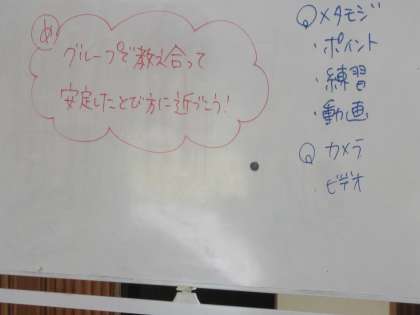 め
グループで教え合って
安定したとび方に近づこう!
メタモジ
・ポイント
・練習
・動画
カメラ
・ビデオ